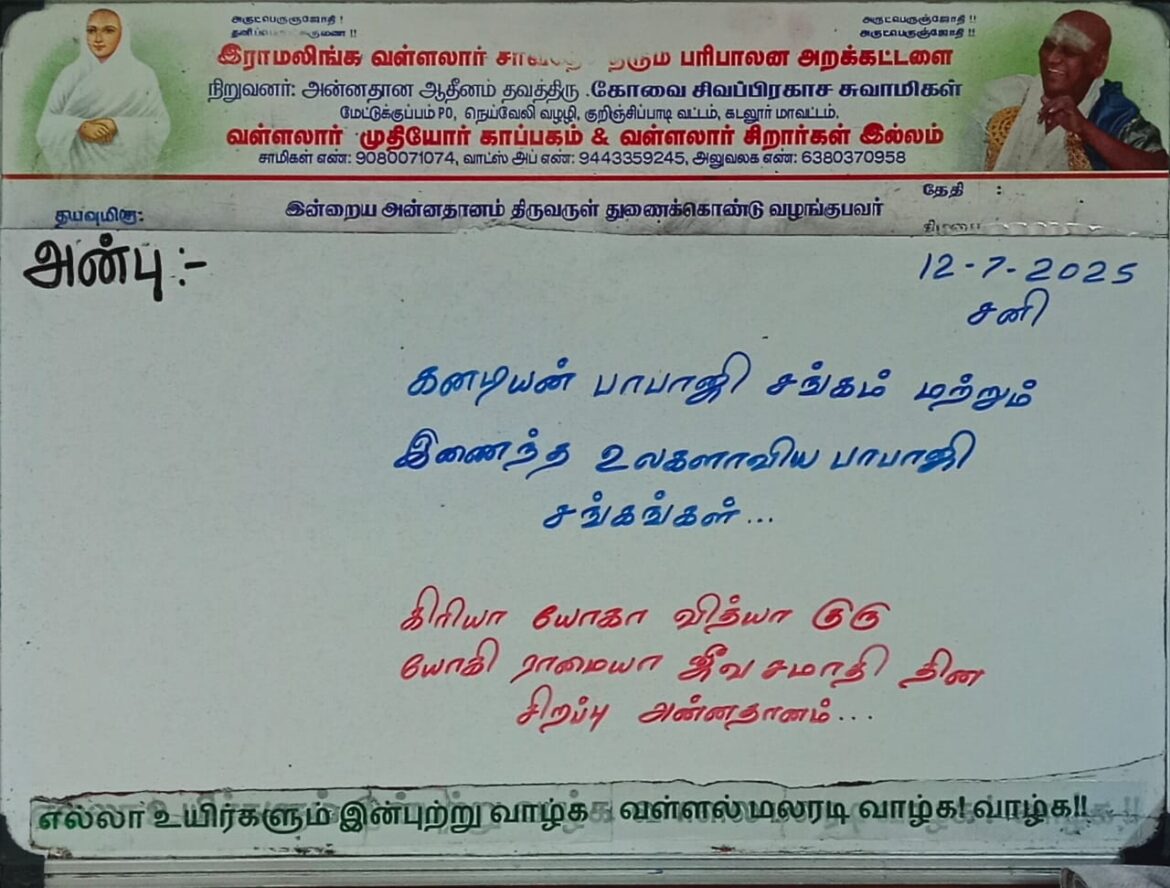 அருட்பெருஞ்ஜோதி !
அருட்பெருஞ்ஜோதி !!
அருட்பெருஞ்ஜோதி !!
இராமலிங்க வள்ளலார் தரும பரிபாலன அறக்கட்டளை
நிறுவனர்: அன்னதான ஆதீனம் தவத்திரு .கோவை சிவப்பிரகாச சுவாமிகள்
மேட்டுக்குப்பம் PO, நெய்வேலி வழழி, குறிஞ்சிப்பாடி வட்டம், கடலூர் மாவட்டம்.
வள்ளலார் முதியோர் காப்பகம் & வள்ளலார் சிறார்கள் இல்லம்
சாமிகள் எண்: 9080071074, வாட்ஸ் அப் எண்: 9443359245, அலுவலக எண்: 6380370958
தேதி :
தயவுமிகு:
இன்றைய அன்னதானம் திருவருள் துணைக்கொண்டு வழங்குபவர்
அன்பு :-
12-7-2025
சனி
கனடியன் பாபாஜி சங்கம் மற்றும்
இணைந்த உலகளாவிய பாபாஜி
சங்கங்கள்...
கிரியா யோகா வித்யா குரு
யோகி ராமையா ஜீவ சமாதி தின
சிறப்பு அன்னதானம்...
எல்லா உயிர்களும் இன்புற்று வாழ்க வள்ளல் மலரடி வாழ்க! வாழ்க!!